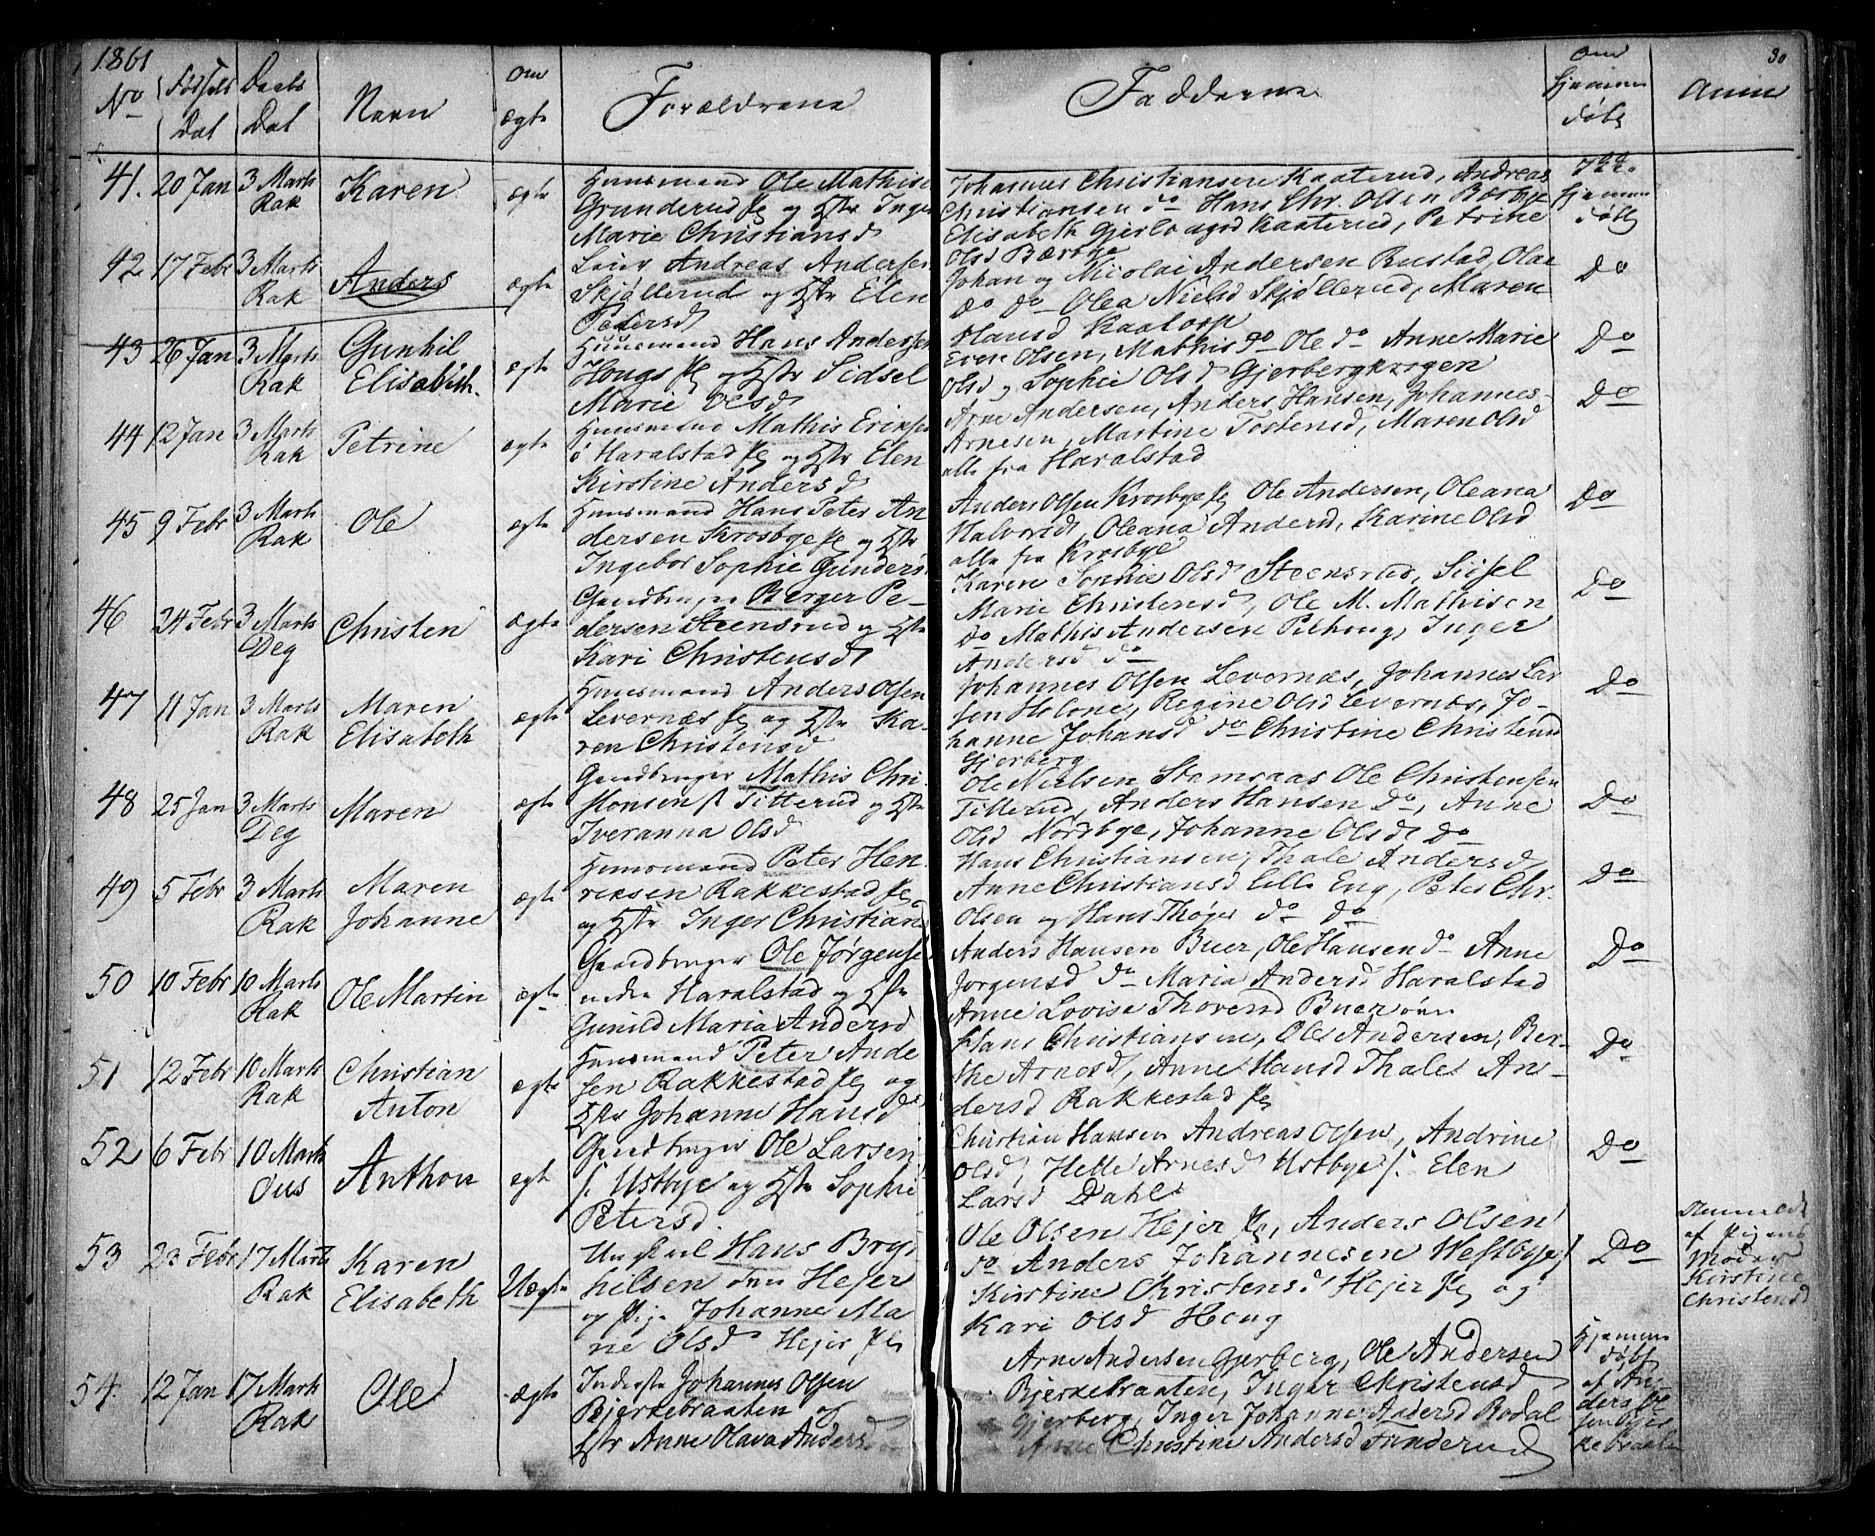 1861
30
No Fødsels Dat Daabs Dat Navn om ægte Forældrene Faddere om hjemmedøbt Anm
41. 20 Jan 3 Marts Rak Karen ægte
Huusmand Ole Mathise
Grunderud Eg og Hstr Inge
Marie Christiansd
Johannes Christiansen Kaaterud, Andreas
Christiansen do Hans Chr. Olsen Bærbye
Elisabeth Kaaterud, Petrine
Olsd Bærbye
hjemme
døbt
42 17 Febr 3 Marts Rak Anders ægte
Andreas Andersen
Skjøllerud og Hstr Elen
Pedersd
Johan og Nicolai Andersen Rustad, Olaa
do do Olea Nielsd Skjøllerud, Maren
Hansd Kaatorp
Do
43 26 Jan 3 Marts Rak Gunhil Elisabeth. ægte
Huusmand Hans Andersen
Hougs Eg og Hstr Sidsel
Marie Olsd
Even Olsen, Mathis do Ole do Anne Marie
Olsd og Sophie Olsd Gjerberg
Do
44 12 Jan 3 Marts Rak Petrine ægte
Huusmand Mathis Eriksen
Haralstad Eg og Hstr Elen
Kirstine Andersd
Arne Andersen, Anders Hansen, Johannes
Arnesen, Martine Tostensd, Maren Olsd
alle fra Haralstad
Do
45 9 Febr 3 Marts Rak Ole ægte
Huusmand Hans Peter An
dersen Krosbye Eg og Hstr
Ingebor Sophie Gunders
Anders Olsen Krosbye Eg Ole Andersen, Oleana
Halvorsd, Oleana Andersd, Karine Olsd
alle fra Krosbye
Do
46 24 Febr 3 Marts Deg Christen ægte
Gaardbruger Berger Pe-
dersen Steensrud og Hstr
Kari Christensd
Karen Sophie Olsd Steensrud, Sidsel
Marie Christensd, Ole M. Mathisen
do Mathis Andersen Pilhoug, Inger
Andersd do
Do
47 11 Jan 3 Marts Rak Maren Elisabeth ægte
Huusmand Anders Olsen
Levernæs Eg og Hstr Ka-
ren Christensd
Johannes Olsen Levernæs, Johannes Lar
sen Holone, Regine Olsd Levernæs, Jo-
hanne Johansd do Christine Christensd
Gjerberg
Do
48 25 Jan 3 Marts Deg Maren ægte
Gaardbruger Mathis Chri
stensen Titterud og Hstr
Iveranna Olsd
Ole Nielsen Stamsaas Ole Christensen
Titterud, Anders Hansen do, Anne
Olsd Nordbye, Johanne Olsd do
Do
49 5 Febr 3 Marts Rak Maren Johanne ægte
Huusmand Peter Hen
riksen Rakkestad Eg.
og Hstr Inger Christian
Hans Christiansen, Thale Andersd
Anne Christiansd Lille Eng, Peter Chr.
Olsen og Hans Thøger do do
Do
50 10 Febr 10 Marts Rak Ole Martin ægte
Gaardbruger Ole Jørgense
nedre Haralstad og Hstr
Gunild Maria Andersd
Anders Hansen Buer, Ole Hansen do Anne
Jørgensd do Maria Andersd Haralstad
Anne Lovise Thorensd Buer øvre
Do
51 12 Febr 10 Marts Rak Christian Anton ægte
Huusmand Peter Ande
sen Rakkestad Eg og
Hstr Johanne Hansd
Hans Christiansen, Ole Andersen, Ber-
the Arnesd, Anne Hansd Thale An-
dersd Rakkestad Eg
Do
52 6 Febr 10 Marts Ous Anthon ægte
Gaardbruger Ole Larsen
s. Ustbye og Hstr Sophie
Petersd.
Christian Hansen Andreas Olsen, Andrine
Olsd, Helle Arnesd Ustbye s. Elen
Larsd Dahl
Do
53 23 Febr 17 Marts Rak Karen Elisabeth Uægte
Ungkarl Hans Bry
hilsen Hejer
og Pige Johanne Ma
rie Olsd Hejer Eg
Ole Olsen Hejer Eg, Anders Olsen
do Anders Johannesen Westbye
Kirstine Christensd Hejer Eg og
Kari Olsd Houg
Do
Anmeldt
af Pigens
Moder
Kirstine
Christensd
54. 12 Jan 17 Marts Rak Ole ægte
Inderste Johannes Olsen
Bjerkebraaten og
Hstr Anne Olava Andersd
Arne Andersen Gjerberg, Ole Andersen
Bjerkebraaten, Inger Christensd
Gjerberg, Inger Johanne Andersd Rodal
Anne Christine Andersd Funderud
Hjemme
døbt
af An-
ders Ol
sen Bjer
kebraaten